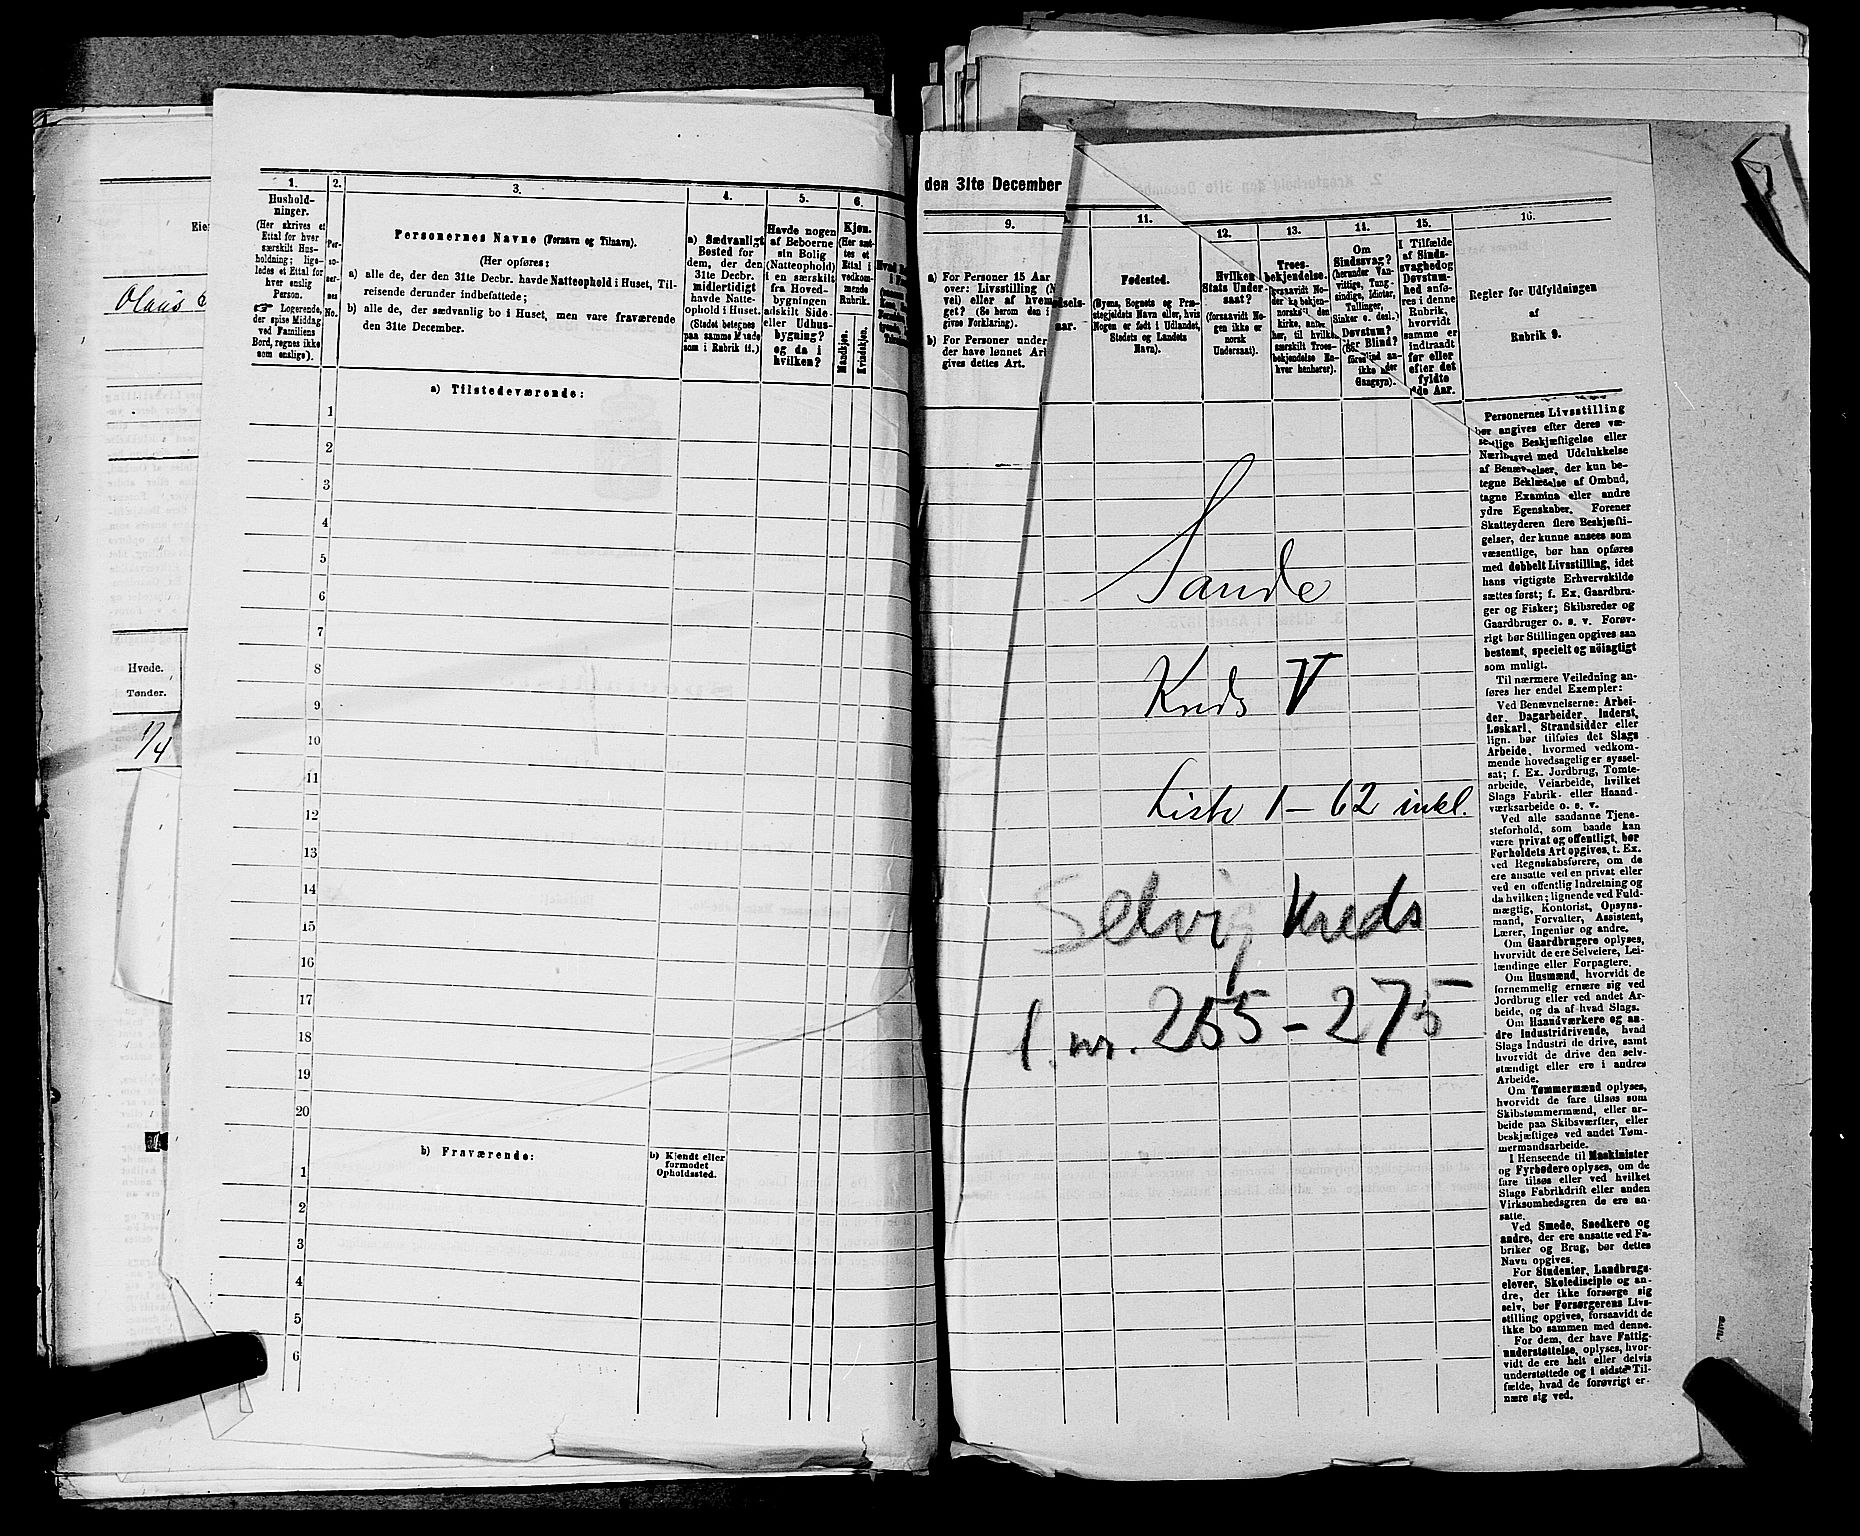 1.
Hushold-
ninger.
(Her skrives et
Ettal for hver
særskilt Hus-
holdning; lige-
ledes et Ettal for
hver enslig
Person.
☞ Logerende,
der spise Middag
ved Familiens
Bord, regnes ikke
som enslige).
2.
Per-
so-
ner-
nes
No.
3.
Personernes Navne (Fornavn og Tilnavn).
(Her opføres:
a) alle de, der den 31te Decbr. havde Natteophold i Huset, Til-
reisende derunder indbefattede;
b) alle de, der sædvanlig bo i Huset, men vare fraværende
den 31te December.
4.
a) Sædvanligt
Bosted for
dem, der den
31te Decbr.
midlertidigt
havde Natte-
ophold i Huset.
(Stedet betegnes
paa samme Maade
som i Rubrik 11.)
5.
Havde nogen
af Beboerne
sin Bolig
(Natteophold)
i en særskilt
fra Hoved-
bygningen
adskilt Side-
eller Udhus-
bygning?
og da i
hvilken?
6.
Kjøn.
(Her sæt-
tes et
Ettal i
vedkom-
mende
Rubrik.
Mandkjøn.
Kvindekjøn.
a) Tilstedeværende:
1
2
3
4
5
6
7
8
9
10
11
12
13
14
15
16
17
18
19
20
b) Fraværende:
b) Kjendt eller
formodet
Opholdssted.
1
2
3
4
5
6
Eie
Olaus
Hvede.
Tønder.
1/4
den 31te December
9.
a) For Personer 15 Aar
over: Livsstilling (N
vei) eller af hvem
get? (Se herom den i
givne Forklaring).
b) For Personer under
der have lønnet Ar
gives dettes Art.
ødsels-
aar.
11.
Fødested.
(Byens, Sognets og Præ-
stegjeldets Navn eller, hvis
Nogen er født i Udlandet,
Stedets og Landets
Navn).
12.
Hvilken
Stats Under-
saat?
(forsaavidt No-
gen ikke er
norsk
Undersaat).
13.
Troes-
bekjendelse.
14.
Om
Sindssvag?
(herunder Van-
vittige, Tung-
sindige, Idioter,
Tullinger,
Sinker o. desl.)
Døvstum?
15.
I Tilfælde
af Sinds-
svaghed og
Døvstum-
hed anfø-
res i denne
Rubrik,
hvorvidt
samme er
indtraadt
før eller
efter det
fyldte
4de Aar.
16.
Regler for Udfyldningen
af
Rubrik 9.
Sande
Kreds V
Liste 1 – 62 inkl.
Selvig Kreds
l. nr. 255 – 275
Personernes Livsstilling
bør angives efter deres væ-
sentlige Beskjæftigelse eller
Næringsvei med Udelukkelse
af Benævnelser, der kun be-
tegne Beklædelse af Ombud,
tagne Examina eller andre
ydre Egenskaber. Forener
Skatteyderen flere Beskjæfti-
gelser, der kunne ansees som
væsentlige, bør han opføres
med dobbelt Livsstilling, idet
hans vigtigste Erhvervskilde
sættes først; f. Ex. Gaardbru-
ger og Fisker; Skibsreder og
Gaardbruger o. s. v. Forøv-
rigt bør Stillingen opgives saa
bestemt, specielt og nöiagtigt
som muligt.
Til nærmere Veiledning an-
føres her endel Exempler:
Ved Benævnelserne: Arbei-
der, Dagarbeider, Inderst,
Løskarl, Strandsidder eller
lign. bør tilføies det Slags
Arbeide, hvormed vedkom-
mende hovedsagelig er syssel-
sat; f. Ex. Jordbrug, Tomte-
arbeide, Veiarbeide, hvilket
Slags Fabrik- eller Haand-
værksarbeide o. s. v.
Ved alle saadanne Tjene-
steforhold, som baade kan
være privat og offentligt, bør
Forholdets Art opgives, t. Ex.
ved Regnskabsførere, om de
ere ansatte ved en privat eller
ved en offentlig Indretning og
da hvilken; lignende ved Fuld-
mægtig, Kontorist, Opsyns-
mand, Forvalter, Assistent,
Lærer, Ingeniør og andre.
Om Gaardbrugere oplyses,
hvorvidt de ere Selveiere, Lei-
lændinge eller Forpagtere.
Om Husmænd, hvorvidt de
fornemmelig ernære sig ved
Jordbrug eller ved andet Ar-
beide, og da af hvad Slags.
Om Haandværkere og an-
dre Industridrivende, hvad
Slags Industri de drive, samt
hvorvidt de drive den selv-
stændigt eller ere i andres
Arbeide.
Om Tømmermænd oplyses,
hvorvidt de fare tilsøs som
Skibstømmermænd, eller ar-
beide paa Skibsværfter, eller
beskjæftiges ved andet Tøm-
mermandsarbeide.
I Henseende til Maskinister
og Fyrbødere oplyses, om de
fare tilsøs eller ved hvilket
Slags Fabrikdrift eller anden
Virksomhedsgren de ere an-
satte.
Ved Smede, Snedkere og
andre, der ere ansatte ved Fa-
briker og Brug, bør dettes
Navn opgives.
For Studenter, Landbrugs-
elever, Skoledisciple og an-
dre, der ikke forsørge sig
selv, bør Forsørgerens Livs-
stilling opgives, forsaavidt de
ikke bo sammen med denne.
For dem, der have Fattig-
understøttelse, oplyses, hvor-
vidt de ere helt eller delvis
understøttede og i sidste Til-
fælde, hvad de forøvrigt er-
nære sig ved.